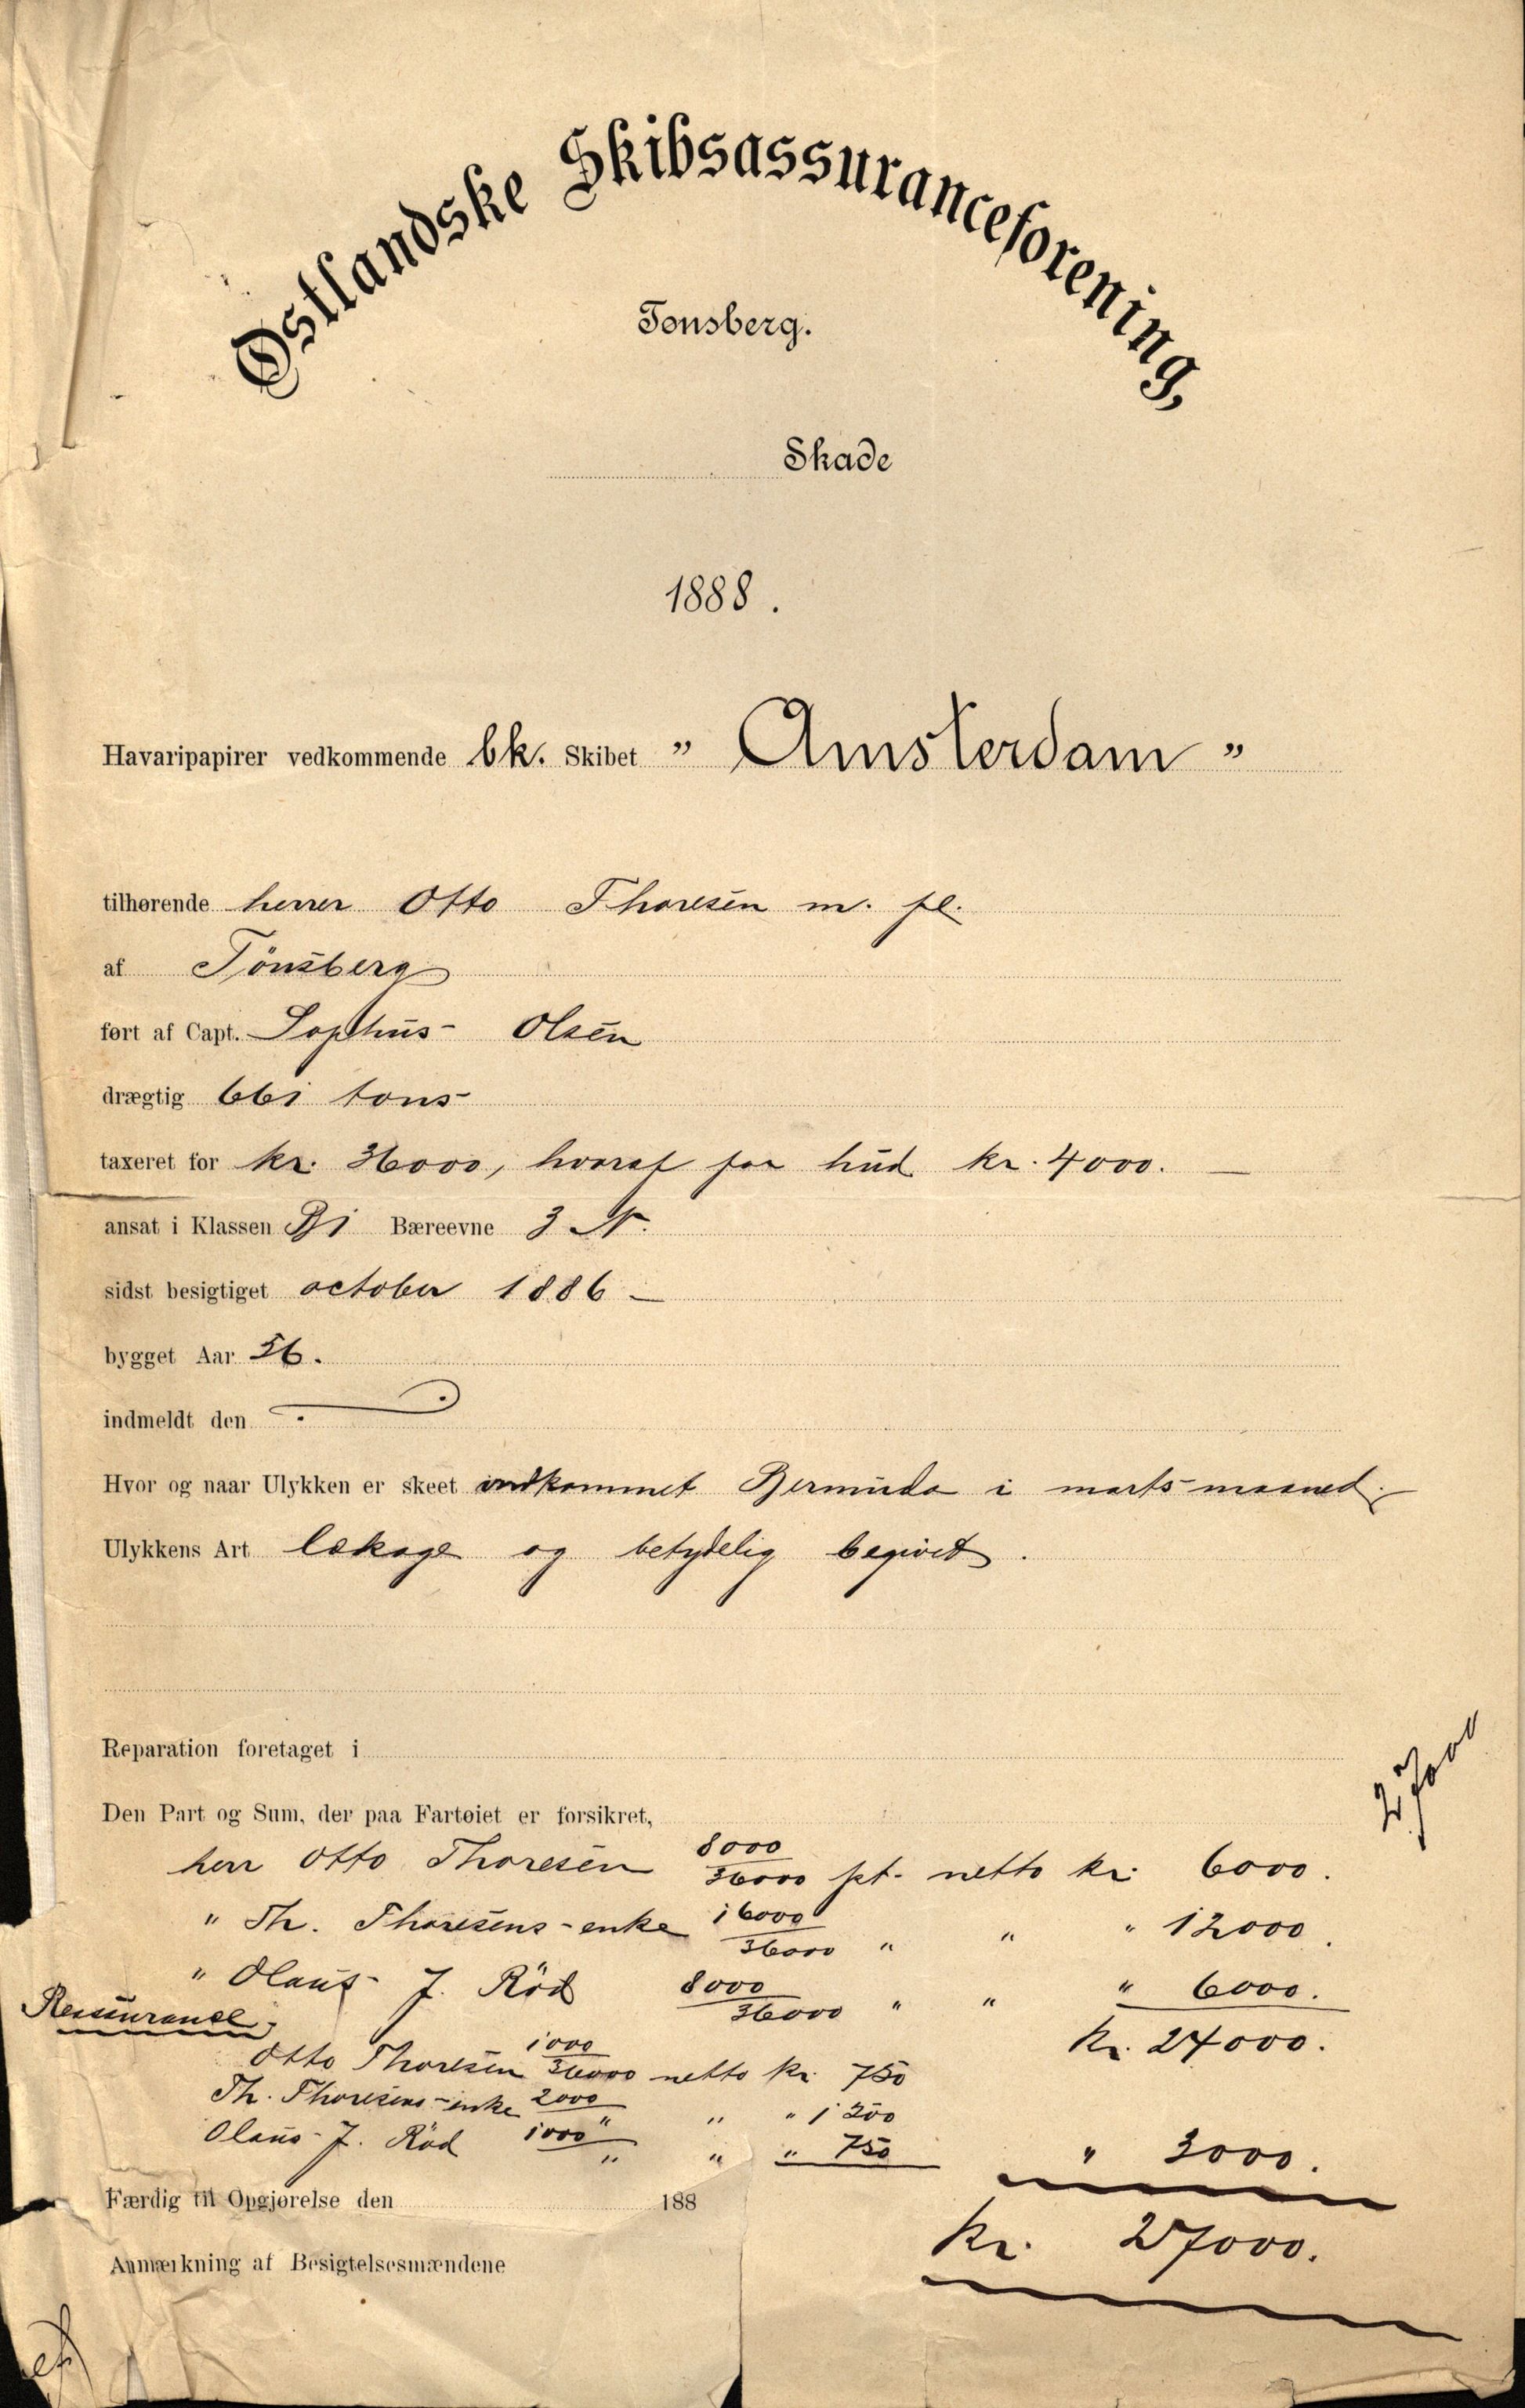 Østlandske Skibsassuranceforening,
Tønsberg.
Skade
1888.
Havaripapirer vedkommende bk. Skibet „ Amsterdam "
tilhørende herrer Otto Thoresen m. fl.
af Tönsberg
ført af Capt. Sophus Olsen
drægtig 661 tons
taxeret for kr. 36000, hvoraf for hud kr. 4000. —
ansat i Klassen B1 Bæreevne 3 N.
sidst besigtiget october 1886 —
bygget Aar 56.
indmeldt den
Hvor og naar Ulykken er skeet indkommet Bermuda i marts maaned.
Ulykkens Art lækage og betydelig begivet.
Reparation foretaget i
27000
Den Part og Sum, der paa Fartøiet er forsikret,
herr Otto Thoresen 8000/36000 pt. netto kr. 6000.
" Th. Thoresens enke 16000/36000 " " " 12000.
" Olaus J. Röd 8000/36000 " " " 6000.
Reassurance, kr. 24000.
Otto Thoresen 1000/36000 netto kr. 750
Th. Thoresens enke 2000/" " " 1500
Olaus J. Röd 1000/" " " 750 " 3000.
Færdig til Opgjørelse den 188
kr. 27000.
Anmærkning af Besigtelsesmændene